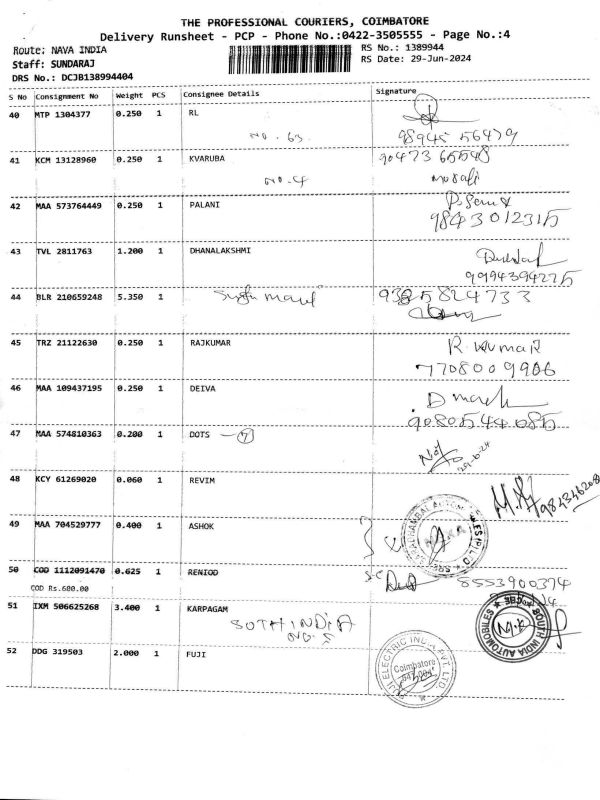 THE PROFESSIONAL COURIERS, COIMBATORE
Delivery Runsheet - PCP - Phone No.:0422-3505555 - Page No.:4
Route: NAVA INDIA
RS No.: 1389944
Staff: SUNDARAJ
RS Date: 29-Jun-2024
DRS No.: DCJB138994404
S No Consignment No Weight PCS Consignee Details Signature
40 MTP 1304377 0.250 1 RL
No. 63. 98945 56479
41 KCM 13128960 0.250 1 KVARUBA 90473 65548
No. 4
42 MAA 573764449 0.250 1 PALANI
9843012315
43 TVL 2811763 1.200 1 DHANALAKSHMI
9994394275
44 BLR 210659248 5.350 1 9385824733
45 TRZ 21122630 0.250 1 RAJKUMAR R. KUMAR
7708009906
46 MAA 109437195 0.250 1 DEIVA
9080544085
47 MAA 574810363 0.200 1 DOTS - 7
29-6-24
48 KCY 61269020 0.060 1 REVIM
49 MAA 704529777 0.400 1 ASHOK
50 COD 1112091470 0.625 1 RENIOD 8553900374
COD Rs.600.00
51 IXM 506625268 3.400 1 KARPAGAM
SOTH INDIA
NO. 5
SOUTH INDIA AUTOMOBILES CBE
52 DDG 319503 2.000 1 FUJI
FUJI ELECTRIC INDIA PVT. LTD.
Coimbatore